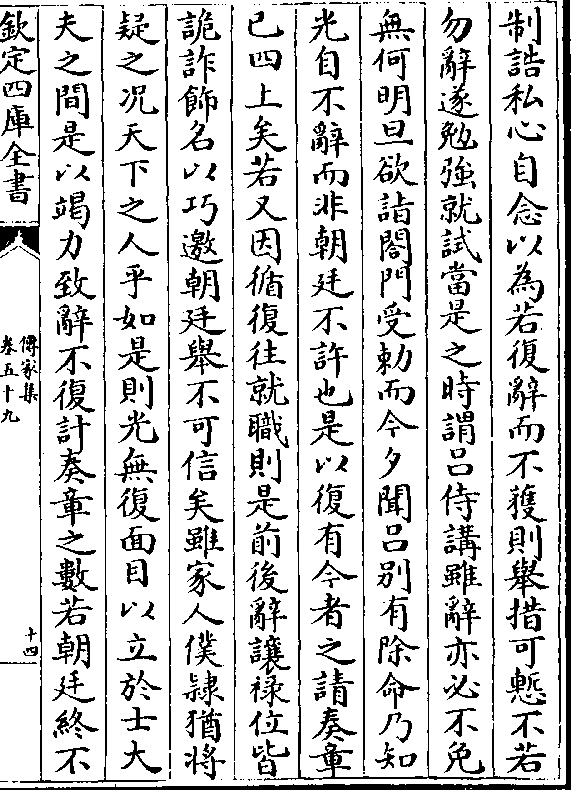 制誥私心自念以為若復辭而不獲則舉措可慙不若
勿辭遂勉強就試當是之時謂吕侍講雖辭亦必不免
無何明旦欲詣閤門受勅而今夕聞吕别有除命乃知
光自不辭而非朝廷不許也是以復有今者之請奏章
已四上矣若又因循復往就職則是前後辭讓禄位皆
詭詐飾名以巧邀朝廷舉不可信矣雖家人僕隷猶將
疑之况天下之人乎如是則光無復面目以立於士大
夫之間是以竭力致辭不復計奏章之數若朝廷終不
欽定四庫全書
傳家集
卷五十九
十四